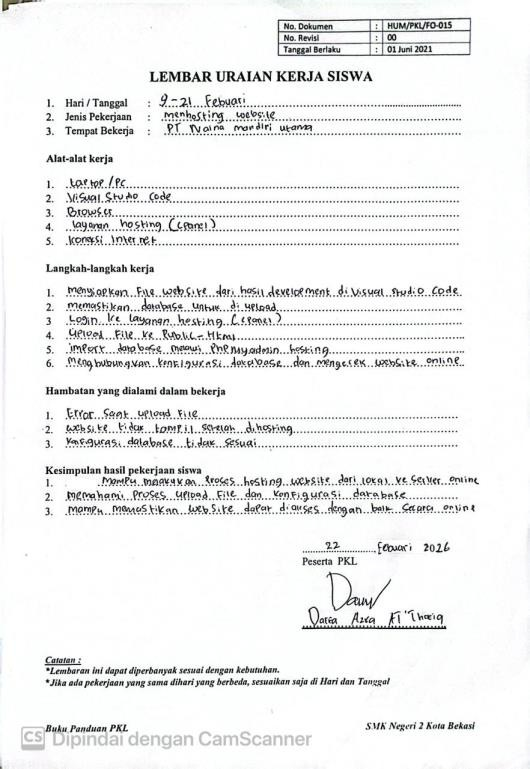 No. Dokumen : HUM/PKL/FO-015
No. Revisi : 00
Tanggal Berlaku : 01 Juni 2021
LEMBAR URAIAN KERJA SISWA
1. Hari / Tanggal : 9-21 Februari
2. Jenis Pekerjaan : menhosting website
3. Tempat Bekerja : PT Naina mandiri utama
Alat-alat kerja
1. Laptop/PC
2. Visual Studio Code
3. Browser
4. layanan hosting (cPanel)
5. koneksi Internet
Langkah-langkah kerja
1. menyiapkan file website dari hasil development di Visual Studio Code
2. memastikan database untuk di upload
3 Login ke layanan hosting (cPanel)
4. Upload File ke Public-Html
5. import database melalui PhPmyadmin hosting
6. menghubungkan konfigurasi database dan mengecek website online
Hambatan yang dialami dalam bekerja
1. Error saat upload file
2. website tidak tampil setelah dihosting
3. konfigurasi database tidak sesuai
Kesimpulan hasil pekerjaan siswa
1. mampu melakukan Proses hosting website dari lokal ke Server online
2. memahami Proses upload File dan konfigurasi database
3. mampu memastikan website dapat diakses dengan baik secara online
22 Februari 2026
Peserta PKL
Daffa Azra Al Thoriq
Catatan :
*Lembaran ini dapat diperbanyak sesuai dengan kebutuhan.
*Jika ada pekerjaan yang sama dihari yang berbeda, sesuaikan saja di Hari dan Tanggal
Buku Panduan PKL SMK Negeri 2 Kota Bekasi
CS Dipindai dengan CamScanner